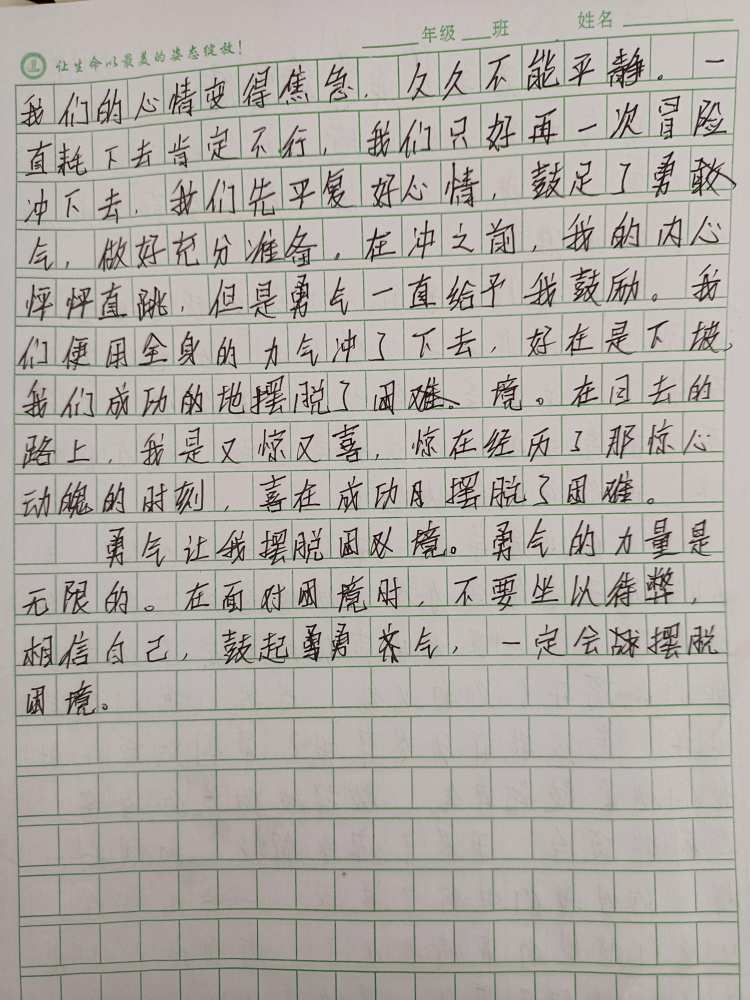 让生命以最美的姿态绽放！ 年级 班 姓名
我们的心情变得焦急，久久不能平静。一
直耗下去肯定不行，我们只好再一次冒险
冲下去，我们先平复好心情，鼓足了勇敢
气，做好充分准备，在冲之前，我的内心
怦怦直跳，但是勇气一直给予我鼓励。我
们便用全身的力气冲了下去，好在是下坡，
我们成功的地摆脱了困难、境。在回去的
路上，我是又惊又喜，惊在经历了那惊心
动魄的时刻，喜在成功月摆脱了困难。
勇气让我摆脱困双境。勇气的力量是
无限的。在面对困境时，不要坐以待弊，
相信自己，鼓起勇勇气，一定会战摆脱
困境。